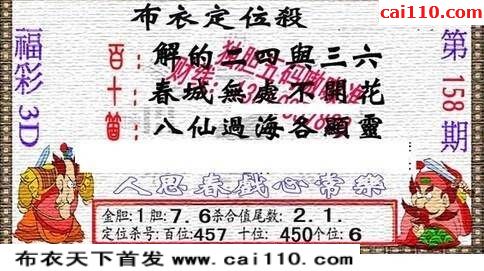 cai110.com
布衣定位殺
福彩3D
第158期
百：解的二四與三六
十：春城無處不開花
個：八仙過海各顯靈
人思春戲心常樂
金胆:1胆:7.6杀合值尾数: 2.1.
定位杀号:百位:457 十位: 450个位:6
布衣天下首发 www.cai110.com